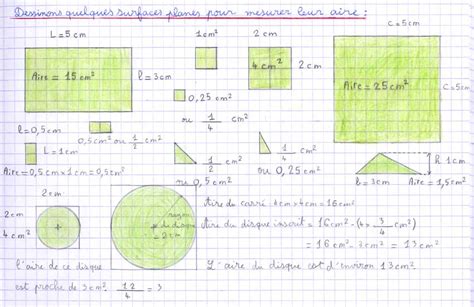 Dessinons quelques surfaces planes pour mesurer leur aire :
L = 5 cm
1 cm²
2 cm
c = 5 cm
Aire = 15 cm²
l = 3 cm
4 cm²
2 cm
Aire = 25 cm²
c = 5 cm
0,25 cm²
ou 1/4 cm²
l = 0,5 cm
0,5 cm² ou 1/2 cm²
L = 1 cm
Aire = 0,5 cm x 1 cm = 0,5 cm²
1/2 cm²
ou 0,5 cm²
1/4 cm²
ou 0,25 cm²
h 1 cm
b = 3 cm
Aire = 1,5 cm²
2 cm
2 cm
4 cm²
rayon
du disque
= 2 cm
Aire du carré : 4 cm x 4 cm = 16 cm²
Aire du disque inscrit = 16 cm² - (4 x 3/4 cm²)
= 16 cm² - 3 cm² = 13 cm²
l'aire de ce disque
est proche de 3 cm². 12/4 = 3
L'aire du disque est d'environ 13 cm².